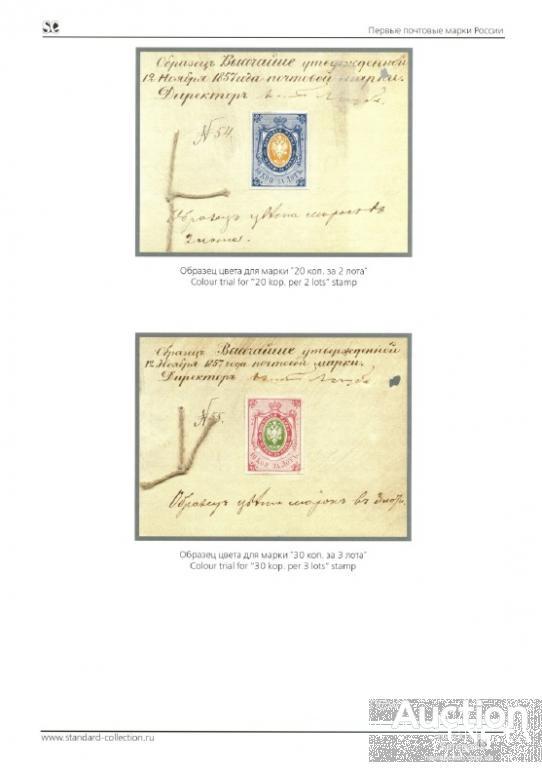 se
Первые почтовые марки России
Образецъ Высочайше утвержденной
12 Ноября 1857 года почтовой марки.
Директоръ
№ 54.
10 КОП. ЗА ЛОТЪ.
Образецъ цвѣта марокъ въ
2 лота.
Образец цвета для марки "20 коп. за 2 лота"
Colour trial for "20 kop. per 2 lots" stamp
Образецъ Высочайше утвержденной
12 Ноября 1857 года почтовой марки.
Директоръ
№ 55.
10 КОП. ЗА ЛОТЪ.
Образецъ цвѣта марокъ въ 3 лот.
Образец цвета для марки "30 коп. за 3 лота"
Colour trial for "30 kop. per 3 lots" stamp
www.standard-collection.ru
Auction